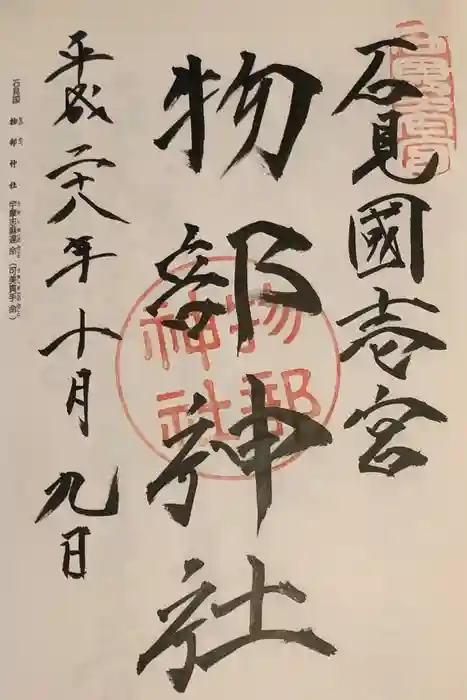 石見國壱宮
物部神社
平成二十八年十月九日
物部神社
石見国 物部神社 宇摩志麻遅命(可美真手命)